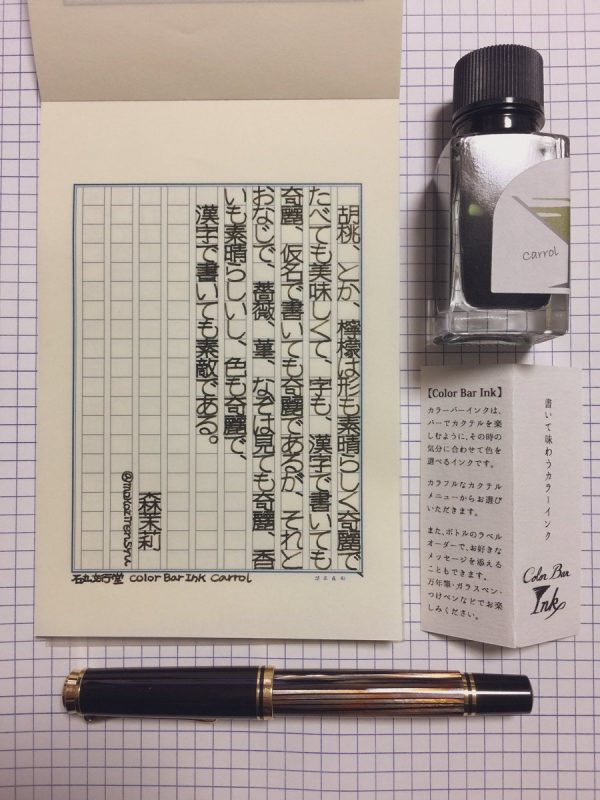 胡桃、とか、檸檬は形も素晴らしく奇麗で
たべても美味しくて、字も、漢字で書いても
奇麗、仮名で書いても奇麗であるが、それと
おなじで、薔薇、菫、なぞは見ても奇麗、香
いも素晴らしいし、色も奇麗で、
漢字で書いても素敵である。
森茉莉
石丸文行堂 Color Bar Ink Carrol
carrol
【Color Bar Ink】
カラーバーインクは、
バーでカクテルを楽
しむように、その時の
気分に合わせて色を
選べるインクです。
カラフルなカクテル
メニューからお選び
いただきます。
また、ボトルのラベル
オーダーで、お好きな
メッセージを添える
こともできます。
万年筆・ガラスペン・
つけペンなどでお楽
しみください。
書いて味わうカラーインク
Color Bar
Ink